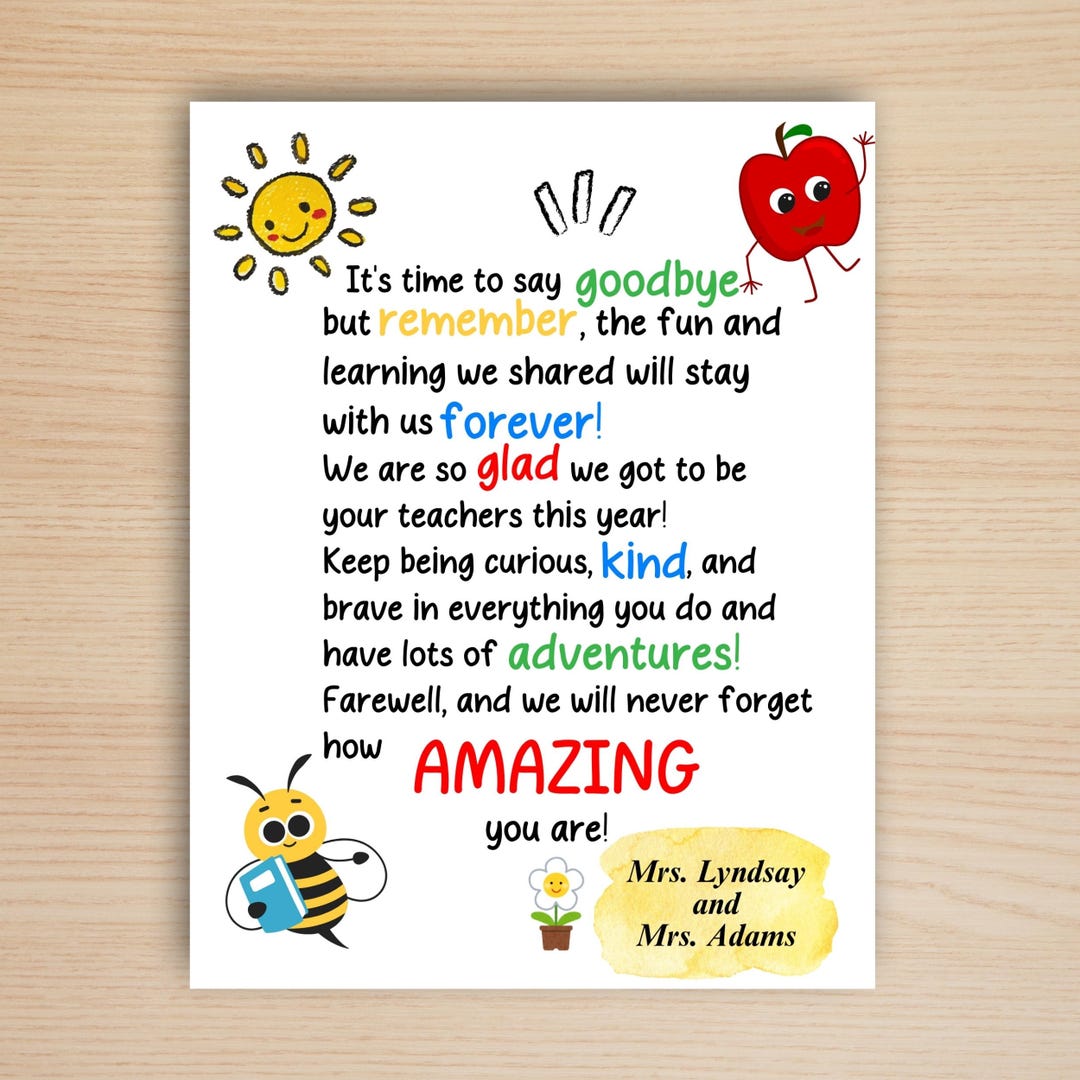 It's time to say goodbye
but remember, the fun and
learning we shared will stay
with us forever!
We are so glad we got to be
your teachers this year!
Keep being curious, kind, and
brave in everything you do and
have lots of adventures!
Farewell, and we will never forget
how AMAZING
you are!
Mrs. Lyndsay
and
Mrs. Adams